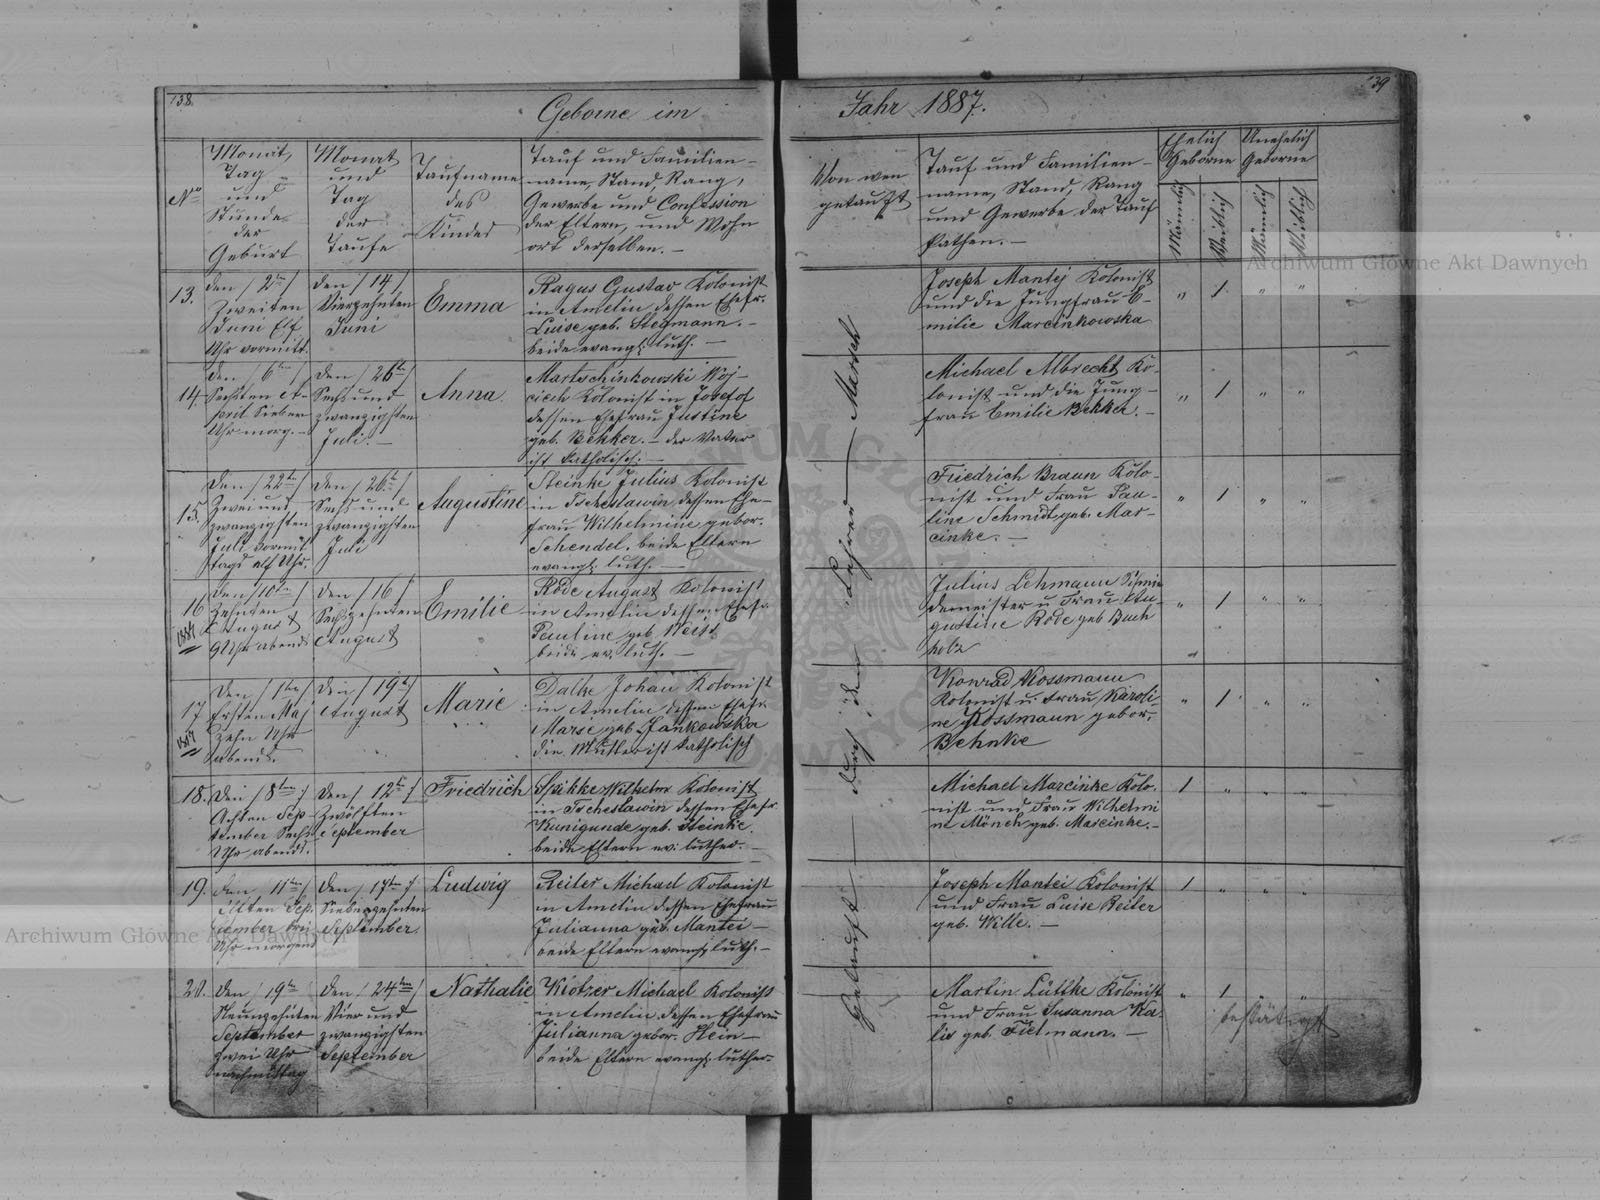 138.
Geborne im
Jahr 1887.
139
No
Monat,
Tag
und
Stunde
der
Geburt
Monat
und
Tag
der
Taufe
Taufname
des
Kindes
Tauf und Familien-
name, Stand, Rang,
Gewerbe und Confession
der Eltern, und Wohn
ort derselben. —
Von wem
getauft
Tauf und Familien-
name, Stand, Rang
und Gewerbe der Tauf
Pathen. —
Ehelich
Geborne
Unehelich
Geborne
Männlich
Weiblich
Männlich
Weiblich
13.
den / 2ten /
Zweiten
Juni Elf
Uhr vormitt.
den / 14 /
Vierzehnten
Juni
Emma
Ragus Gustav Kolonist
in Amelin dessen Ehefr.
Luise geb. Stegmann. —
beide evangl. luth. —
Joseph Mantej Kolonist
und die Jungfrau E-
milie Marcinkowska
" 1 " "
14.
den / 6ten /
Sechsten A-
pril Sieben
Uhr morg. —
den / 26te /
Sechs und
zwanzigsten
Juli. —
Anna
Martschinkowski Woj-
ciech Kolonist in Josefof
dessen Ehefrau Justine
geb. Bekker. — der Vater
ist katholisch. —
Michael Albrecht Ko-
lonist und die Jung-
frau Emilie Bekker. —
" 1 " "
15.
den / 22te /
Zwei und
zwanzigsten
Juli vormit
tags elf Uhr.
den / 26te /
Sechs und
zwanzigsten
Juli
Augustine
Steinke Julius Kolonist
in Tscheslawin, dessen Ehe-
frau Wilhelmine gebor.
Schendel. beide Eltern
evangl. luth. —
Friedrich Braun Kolo-
nist und Frau Pau-
line Schmidt, geb. Mar-
cinke. —
" 1 " "
16
1887
den / 10ten /
Zehnten
August
9 Uhr abends
den / 16 /
Sechszehnten
August
Emilie
Rode August Kolonist
in Amelin dessen Ehefr
Pauline geb. Weiss
beide ev. luth. —
Julius Lehmann Schmie
demeister u Frau Au-
gustine Rode geb Buch
holz
" 1 " "
17
den / 1ten /
Ersten Maj
zehn Uhr
abends.
den / 19te /
August
Marie
Dalke Johan Kolonist
in Amelin dessen Ehefr.
Marie geb. Jankowska
die Mutter ist katholisch
Konrad Kossmann
Kolonist u. Frau Karoli-
ne Kossmann gebor.
Behnke
" 1 " "
18.
den / 8ten /
Achten Sep-
tember Sechs
Uhr abends.
den / 12te /
Zwölften
September
Friedrich
Spikke Wilhelm Kolonist
in Tscheslawin dessen Ehefr
Kunigunde geb. Steinke.
beide Eltern ev: luther. —
Michael Marcinke Kolo-
nist und Frau Wilhelmi
ne Mönch, geb. Marcinke. —
1 " " "
19.
den 11ten /
Elften Sep-
tember drei
Uhr morgens
den / 17ten /
Siebenzehnten
September
Ludwig
Reiter Michael Kolonist
in Amelin dessen Ehefrau
Julianna geb. Mantei —
beide Eltern evangl. luth. —
Joseph Mantei Kolonist
und Frau Luise Reiter
geb. Wille. —
1 " " "
20.
den / 19te
Neunzehnten
September
zwei Uhr
nachmittag
den / 24ten /
Vier und
zwanzigsten
September
Nathalie
Klotzer Michael Kolonist
in Amelin dessen Ehefrau
Julianna gebor. Hein —
beide Eltern evangl. luther.
Martin Lüttke Kolonist
und Frau Susanna Ka
lis geb. Tietmann. —
" 1 " "
bestätigt
Getauft — durch den Lehrer — Marsch
Archiwum Główne Akt Dawnych
Archiwum Główne Akt Dawnych